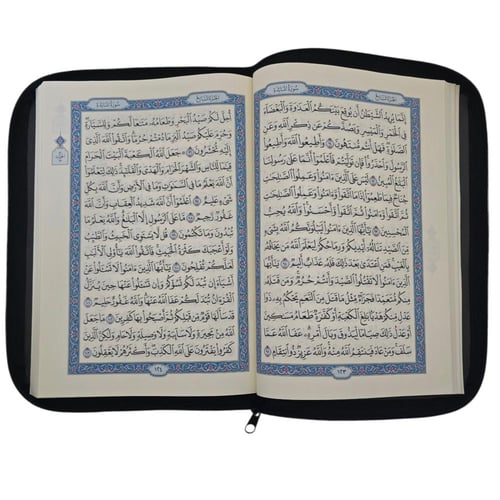 الجزء السابع
سورة المائدة
إِنَّمَا يُرِيدُ الشَّيْطَٰنُ أَن يُوقِعَ بَيْنَكُمُ الْعَدَٰوَةَ وَالْبَغْضَآءَ
فِي الْخَمْرِ وَالْمَيْسِرِ وَيَصُدَّكُمْ عَن ذِكْرِ اللَّهِ وَعَنِ
الصَّلَوٰةِ فَهَلْ أَنتُم مُّنتَهُونَ ٩١ وَأَطِيعُوا اللَّهَ وَأَطِيعُوا
الرَّسُولَ وَاحْذَرُوا فَإِن تَوَلَّيْتُمْ فَاعْلَمُوٓا أَنَّمَا عَلَىٰ رَسُولِنَا
الْبَلَٰغُ الْمُبِينُ ٩٢ لَيْسَ عَلَى الَّذِينَ ءَامَنُوا وَعَمِلُوا الصَّٰلِحَٰتِ
جُنَاحٌ فِيمَا طَعِمُوٓا إِذَا مَا اتَّقَوا وَّءَامَنُوا وَعَمِلُوا الصَّٰلِحَٰتِ
ثُمَّ اتَّقَوا وَّءَامَنُوا ثُمَّ اتَّقَوا وَّأَحْسَنُوا وَاللَّهُ يُحِبُّ
الْمُحْسِنِينَ ٩٣ يَٰٓأَيُّهَا الَّذِينَ ءَامَنُوا لَيَبْلُوَنَّكُمُ اللَّهُ بِشَيْءٍ
مِّنَ الصَّيْدِ تَنَالُهُٓ أَيْدِيكُمْ وَرِمَاحُكُمْ لِيَعْلَمَ اللَّهُ مَن يَخَافُهُ
بِالْغَيْبِ فَمَنِ اعْتَدَىٰ بَعْدَ ذَٰلِكَ فَلَهُ عَذَابٌ أَلِيمٌ ٩٤ يَٰٓأَيُّهَا
الَّذِينَ ءَامَنُوا لَا تَقْتُلُوا الصَّيْدَ وَأَنتُمْ حُرُمٌ وَمَن قَتَلَهُ
مِنكُم مُّتَعَمِّدًا فَجَزَآءٌ مِّثْلُ مَا قَتَلَ مِنَ النَّعَمِ يَحْكُمُ بِهِ ذَوَا
عَدْلٍ مِّنكُمْ هَدْيًا بَٰلِغَ الْكَعْبَةِ أَوْ كَفَّٰرَةٌ طَعَامُ مَسَٰكِينَ
أَوْ عَدْلُ ذَٰلِكَ صِيَامًا لِّيَذُوقَ وَبَالَ أَمْرِهِ عَفَا اللَّهُ عَمَّا
سَلَفَ وَمَنْ عَادَ فَيَنتَقِمُ اللَّهُ مِنْهُ وَاللَّهُ عَزِيزٌ ذُو انتِقَامٍ ٩٥
١٢٣
الجزء السابع
سورة المائدة
أُحِلَّ لَكُمْ صَيْدُ الْبَحْرِ وَطَعَامُهُ مَتَٰعًا لَّكُمْ وَلِلسَّيَّارَةِ
وَحُرِّمَ عَلَيْكُمْ صَيْدُ الْبَرِّ مَا دُمْتُمْ حُرُمًا وَاتَّقُوا اللَّهَ الَّذِي
إِلَيْهِ تُحْشَرُونَ ٩٦ جَعَلَ اللَّهُ الْكَعْبَةَ الْبَيْتَ الْحَرَامَ
قِيَٰمًا لِّلنَّاسِ وَالشَّهْرَ الْحَرَامَ وَالْهَدْيَ وَالْقَلَٰٓئِدَ ذَٰلِكَ لِتَعْلَمُوٓا
أَنَّ اللَّهَ يَعْلَمُ مَا فِي السَّمَٰوَٰتِ وَمَا فِي الْأَرْضِ وَأَنَّ اللَّهَ بِكُلِّ
شَيْءٍ عَلِيمٌ ٩٧ اعْلَمُوٓا أَنَّ اللَّهَ شَدِيدُ الْعِقَابِ وَأَنَّ اللَّهَ
غَفُورٌ رَّحِيمٌ ٩٨ مَّا عَلَى الرَّسُولِ إِلَّا الْبَلَٰغُ وَاللَّهُ يَعْلَمُ مَا
تُبْدُونَ وَمَا تَكْتُمُونَ ٩٩ قُل لَّا يَسْتَوِي الْخَبِيثُ وَالطَّيِّبُ
وَلَوْ أَعْجَبَكَ كَثْرَةُ الْخَبِيثِ فَاتَّقُوا اللَّهَ يَٰٓأُولِي الْأَلْبَٰبِ
لَعَلَّكُمْ تُفْلِحُونَ ١٠٠ يَٰٓأَيُّهَا الَّذِينَ ءَامَنُوا لَا تَسْـَٔلُوا عَنْ
أَشْيَآءَ إِن تُبْدَ لَكُمْ تَسُؤْكُمْ وَإِن تَسْـَٔلُوا عَنْهَا حِينَ يُنَزَّلُ
الْقُرْءَانُ تُبْدَ لَكُمْ عَفَا اللَّهُ عَنْهَا وَاللَّهُ غَفُورٌ حَلِيمٌ ١٠١
قَدْ سَأَلَهَا قَوْمٌ مِّن قَبْلِكُمْ ثُمَّ أَصْبَحُوا بِهَا كَٰفِرِينَ ١٠٢ مَا جَعَلَ
اللَّهُ مِن بَحِيرَةٍ وَلَا سَآئِبَةٍ وَلَا وَصِيلَةٍ وَلَا حَامٍ وَلَٰكِنَّ الَّذِينَ
كَفَرُوا يَفْتَرُونَ عَلَى اللَّهِ الْكَذِبَ وَأَكْثَرُهُمْ لَا يَعْقِلُونَ ١٠٣
١٢٤